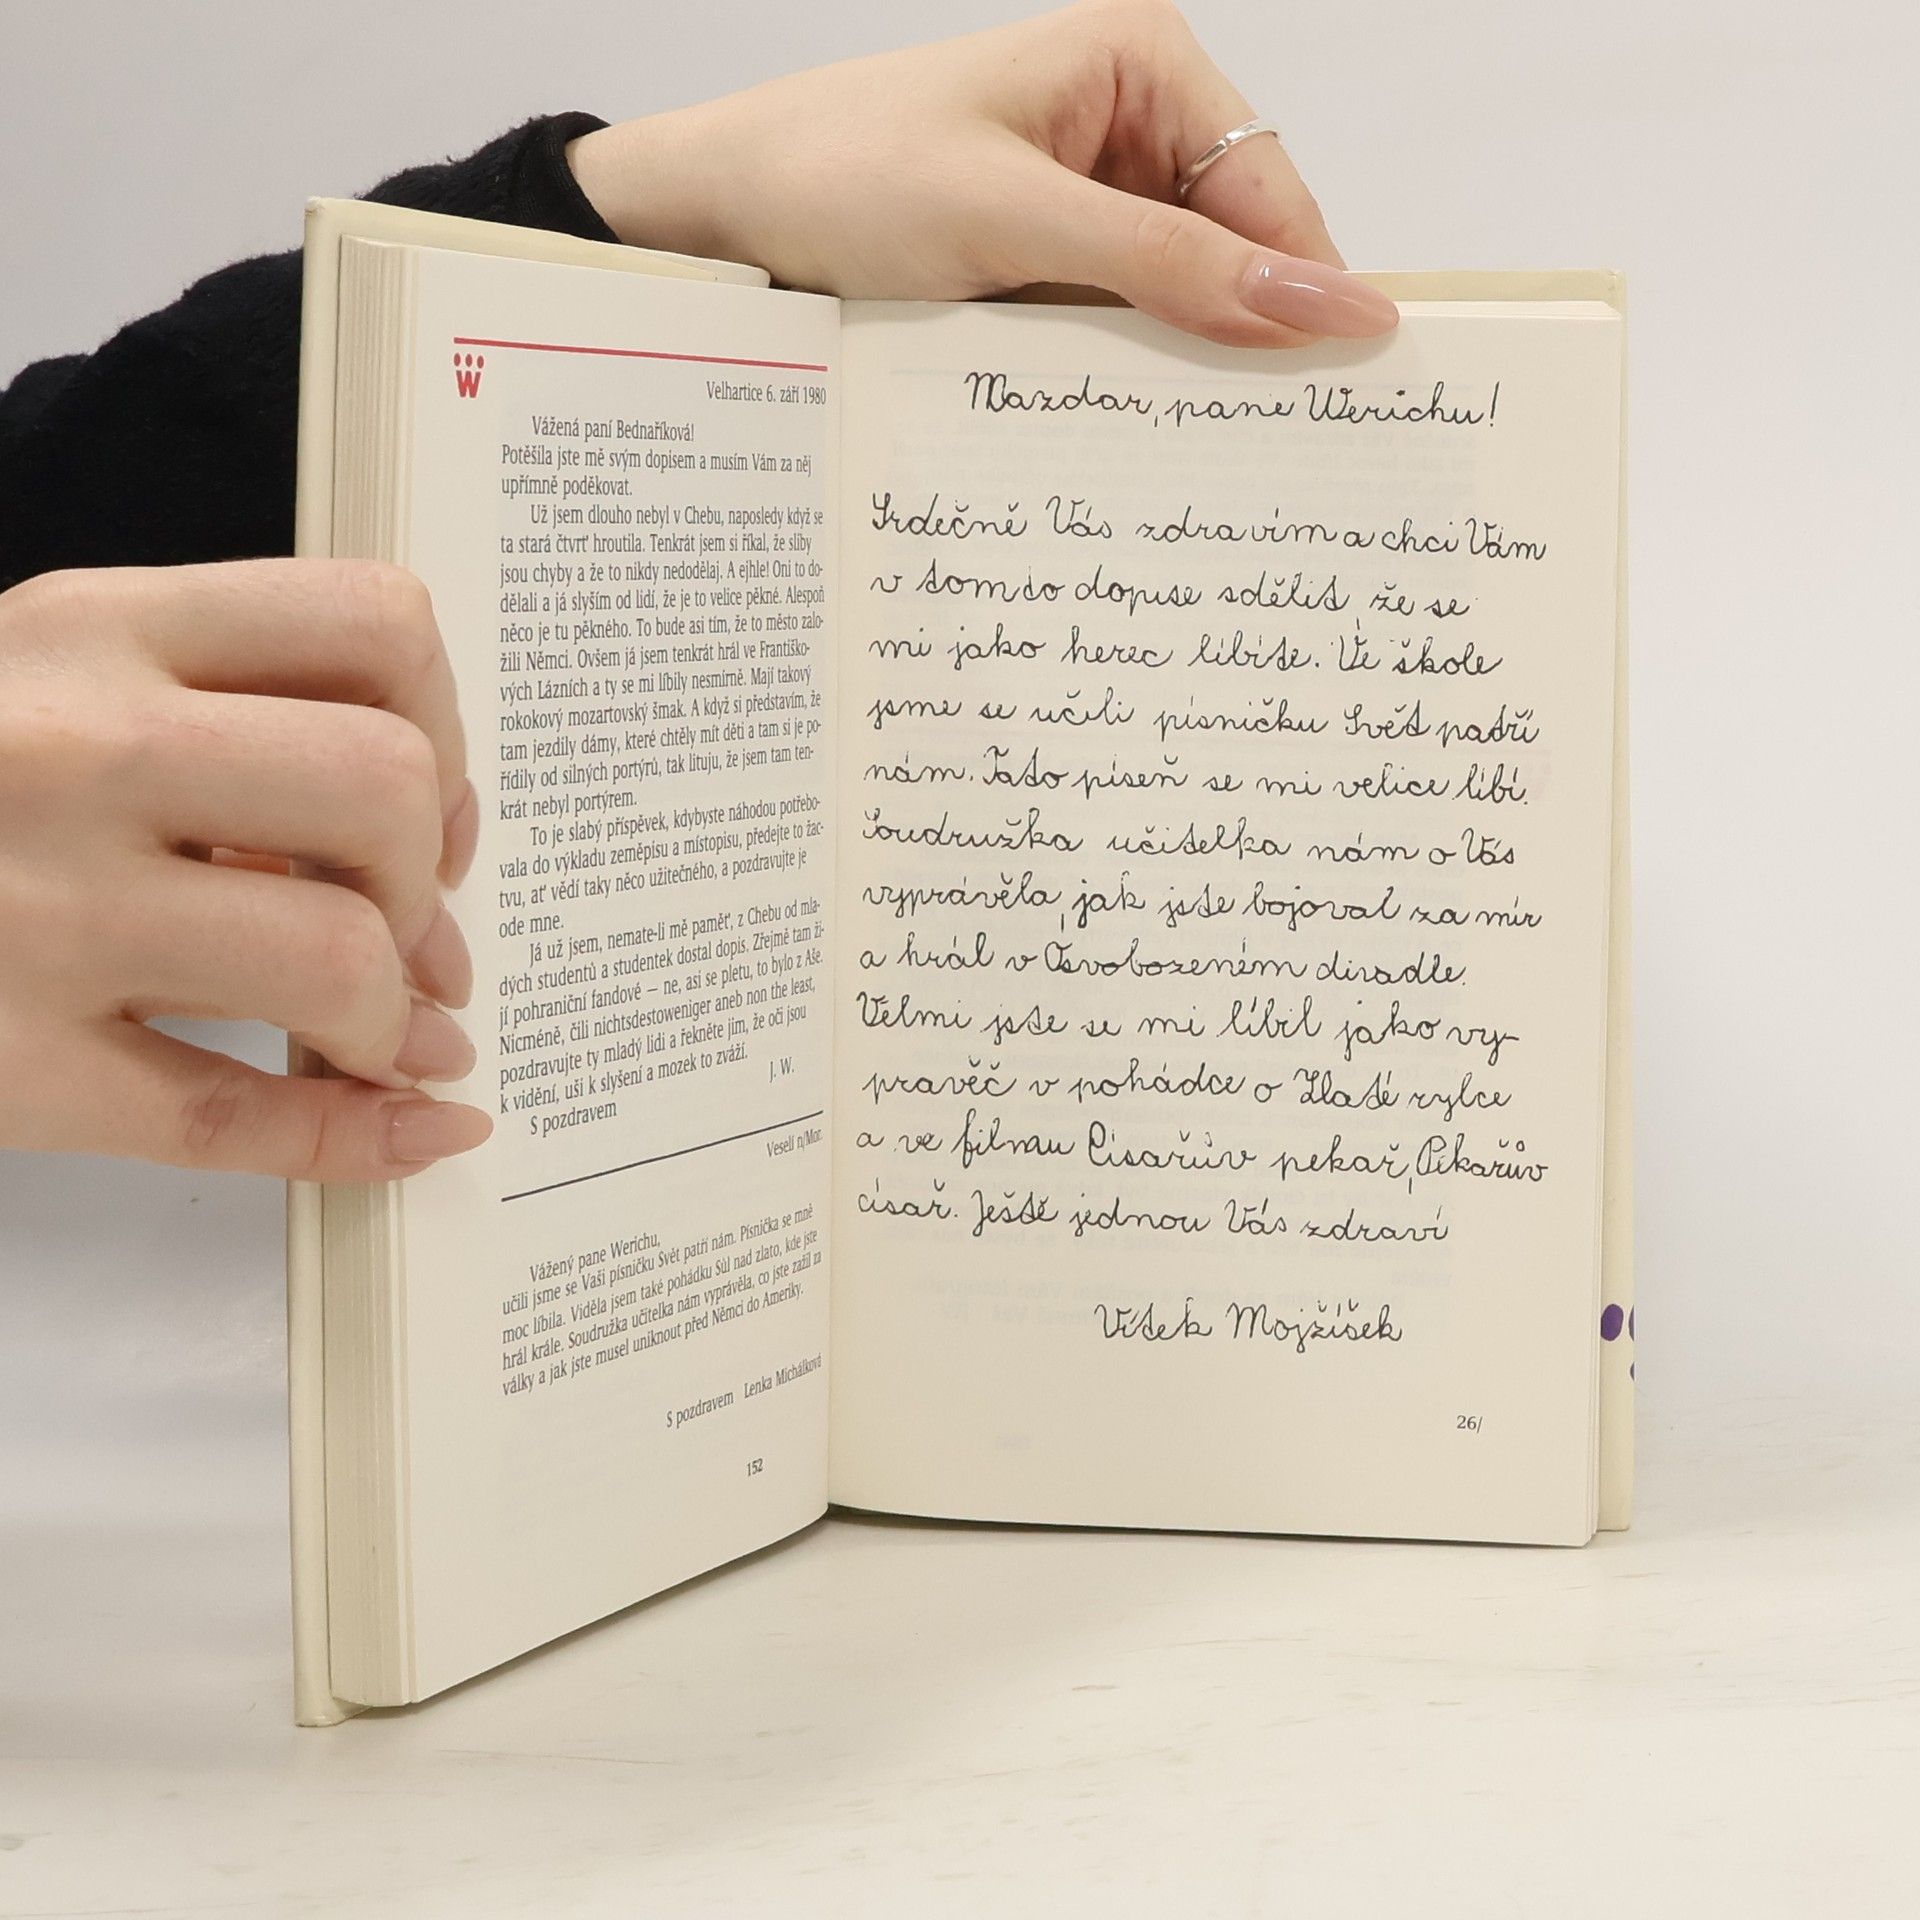 W
Velhartice 6. září 1980
Vážená paní Bednaříková!
Potěšila jste mě svým dopisem a musím Vám za něj
upřímně poděkovat.
Už jsem dlouho nebyl v Chebu, naposledy když se
ta stará čtvrť hroutila. Tenkrát jsem si říkal, že sliby
jsou chyby a že to nikdy nedodělaj. A ejhle! Oni to do-
dělali a já slyším od lidí, že je to velice pěkné. Alespoň
něco je tu pěkného. To bude asi tím, že to město zalo-
žili Němci. Ovšem já jsem tenkrát hrál ve Františko-
vých Lázních a ty se mi líbily nesmírně. Mají takový
rokokový mozartovský šmak. A když si představím, že
tam jezdily dámy, které chtěly mít děti a tam si je po-
řídily od silných portýrů, tak lituju, že jsem tam ten-
krát nebyl portýrem.
To je slabý příspěvek, kdybyste náhodou potřebo-
vala do výkladu zeměpisu a místopisu, předejte to žac-
tvu, ať vědí taky něco užitečného, a pozdravujte je
ode mne.
Já už jsem, nemate-li mě paměť, z Chebu od mla-
dých studentů a studentek dostal dopis. Zřejmě tam ži-
jí pohraniční fandové — ne, asi se pletu, to bylo z Aše.
Nicméně, čili nichtsdestoweniger aneb non the least,
pozdravujte ty mladý lidi a řekněte jim, že oči jsou
k vidění, uši k slyšení a mozek to zváží.
J. W.
S pozdravem
Veselí n/Mor.
Vážený pane Werichu,
učili jsme se Vaši písničku Svět patří nám. Písnička se mně
moc líbila. Viděla jsem také pohádku Sůl nad zlato, kde jste
hrál krále. Soudružka učitelka nám vyprávěla, co jste zažil za
války a jak jste musel uniknout před Němci do Ameriky.
S pozdravem Lenka Michálková
152
Nazdar, pane Werichu!
Srdečně Vás zdravím a chci Vám
v tomto dopise sdělit, že se
mi jako herec líbíte. Ve škole
jsme se učili písničku Svět patří
nám. Tato píseň se mi velice líbí.
Soudružka učitelka nám o Vás
vyprávěla, jak jste bojoval za mír
a hrál v Osvobozeném divadle.
Velmi jste se mi líbil jako vy-
pravěč v pohádce o Zlaté rybce
a ve filmu Císařův pekař, Pekařův
císař. Ještě jednou Vás zdraví
Vítek Mojžíšek
26/